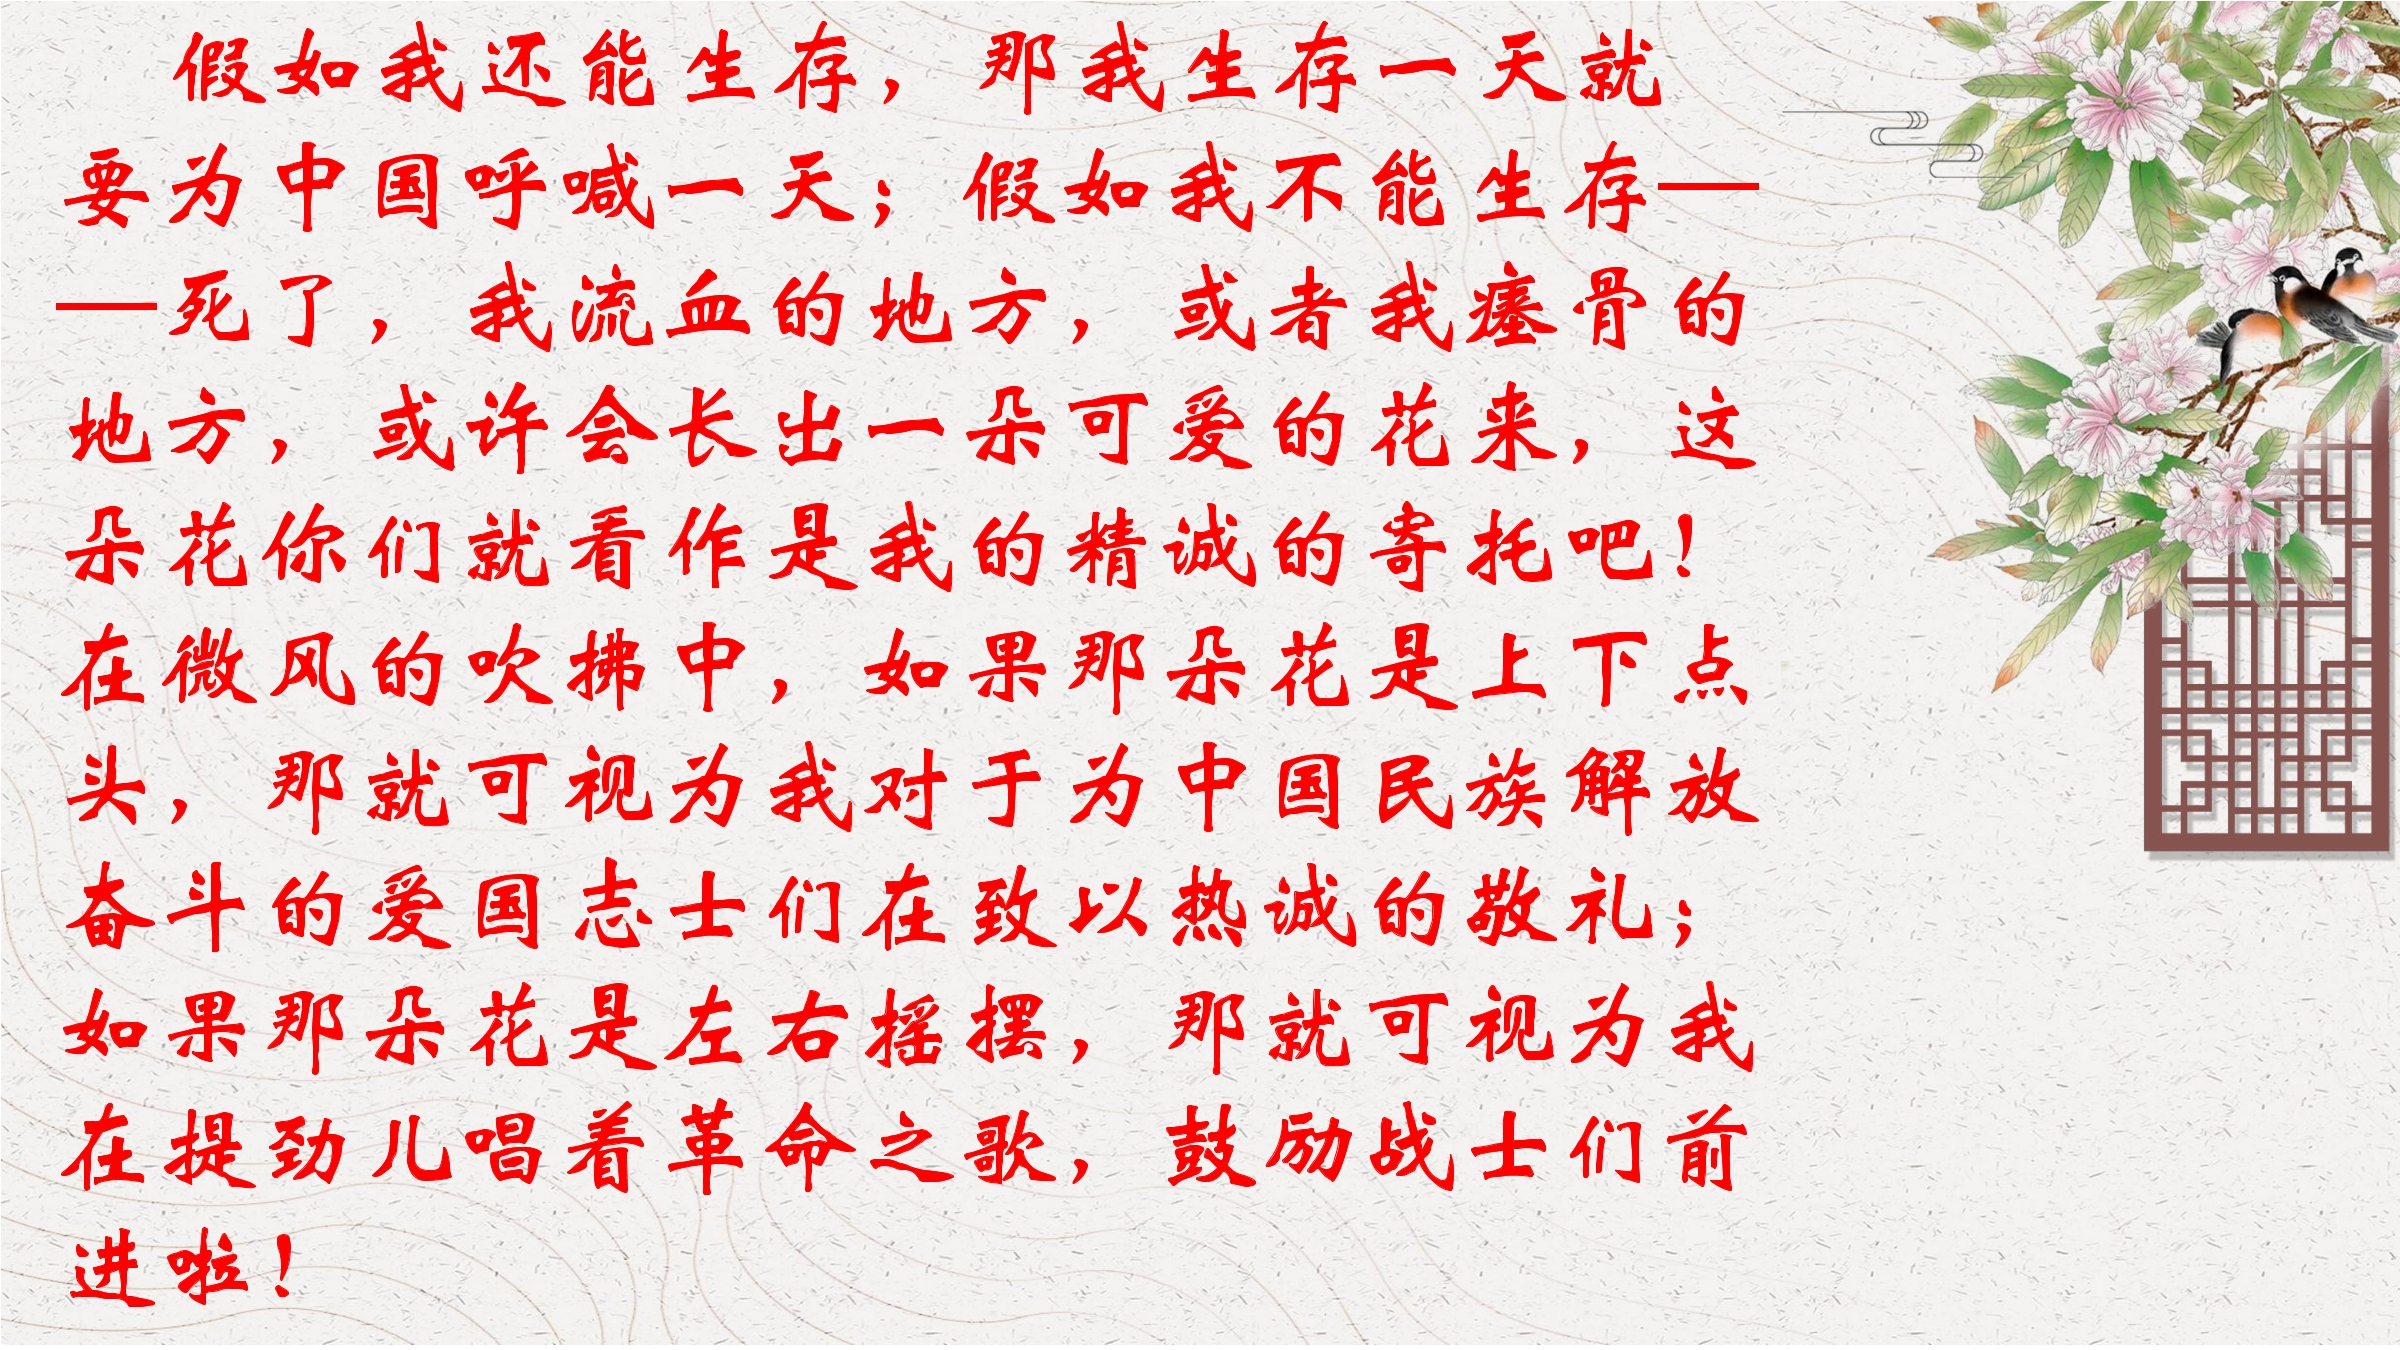 假如我还能生存，那我生存一天就
要为中国呼喊一天；假如我不能生存—
—死了，我流血的地方，或者我瘗骨的
地方，或许会长出一朵可爱的花来，这
朵花你们就看作是我的精诚的寄托吧！
在微风的吹拂中，如果那朵花是上下点
头，那就可视为我对于为中国民族解放
奋斗的爱国志士们在致以热诚的敬礼；
如果那朵花是左右摇摆，那就可视为我
在提劲儿唱着革命之歌，鼓励战士们前
进啦！